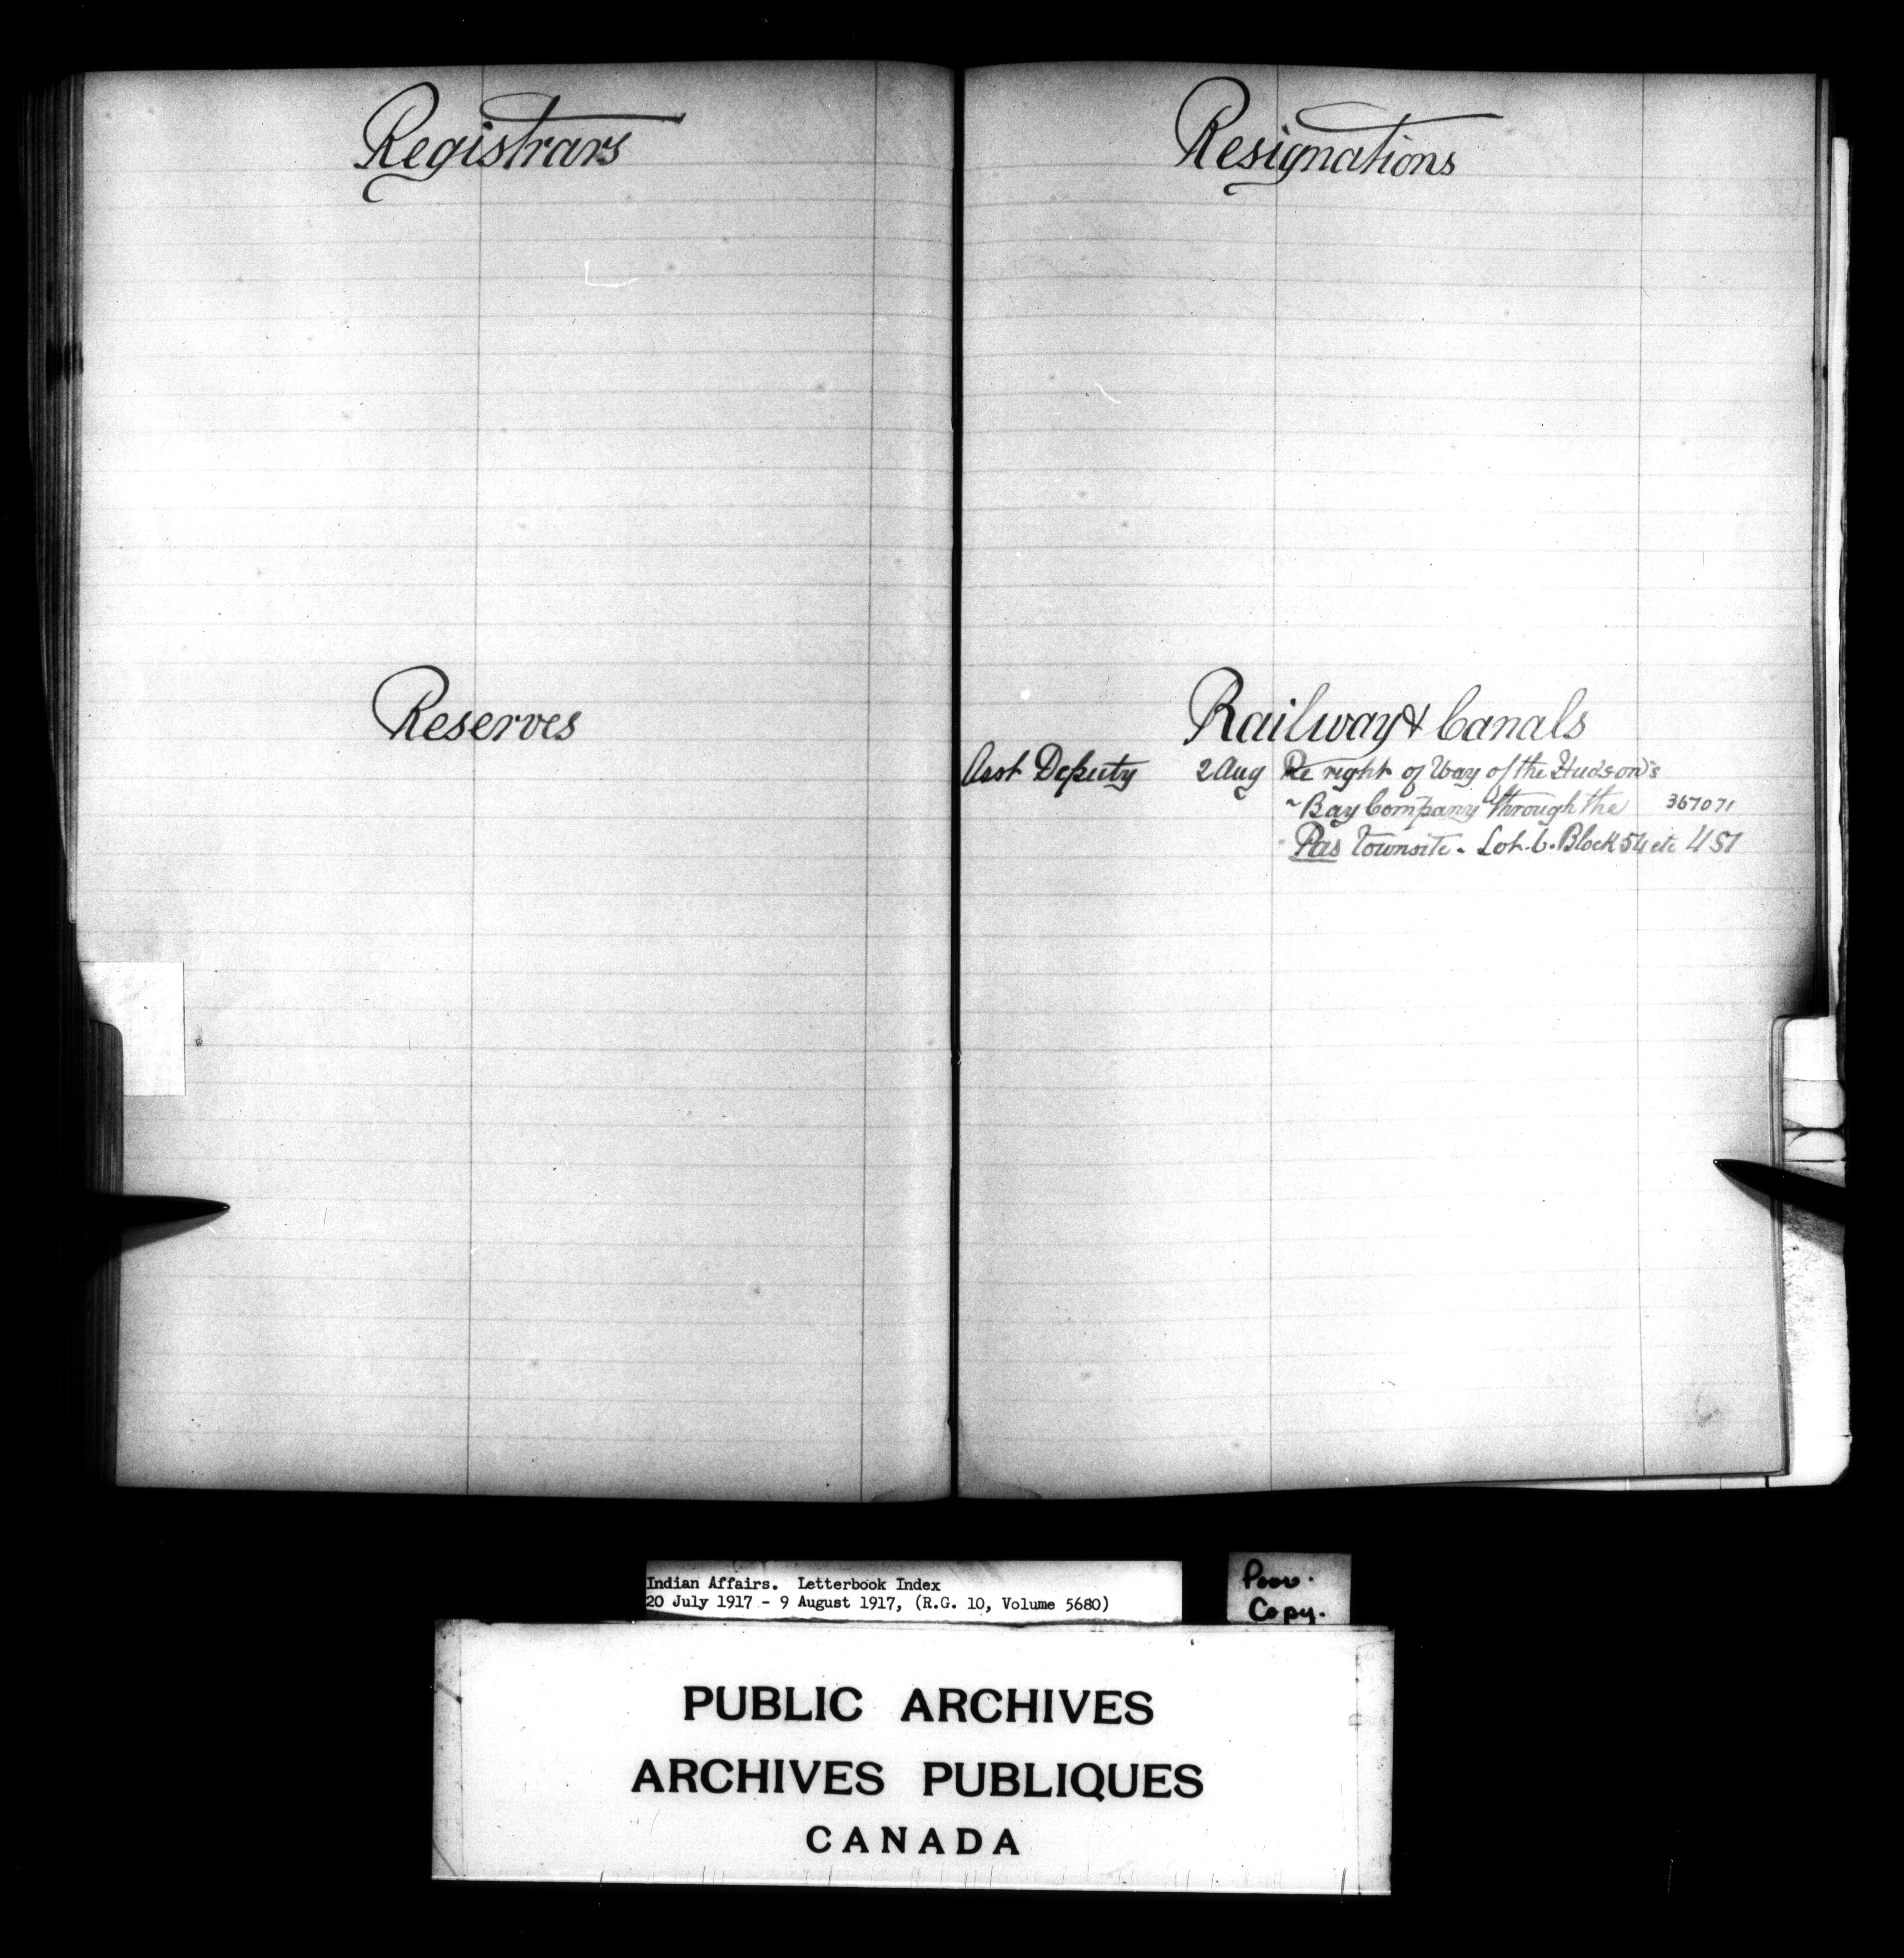 Registrars
Reserves
Resignations
Railway & Canals
Asst Deputy 2 Aug Re right of Way of the Hudson's
~ Bay Company through the 367071
Pas Townsite. Lot. 6. Block 54 etc 451
Indian Affairs. Letterbook Index
20 July 1917 - 9 August 1917, (R.G. 10, Volume 5680)
Poor.
Copy.
PUBLIC ARCHIVES
ARCHIVES PUBLIQUES
CANADA